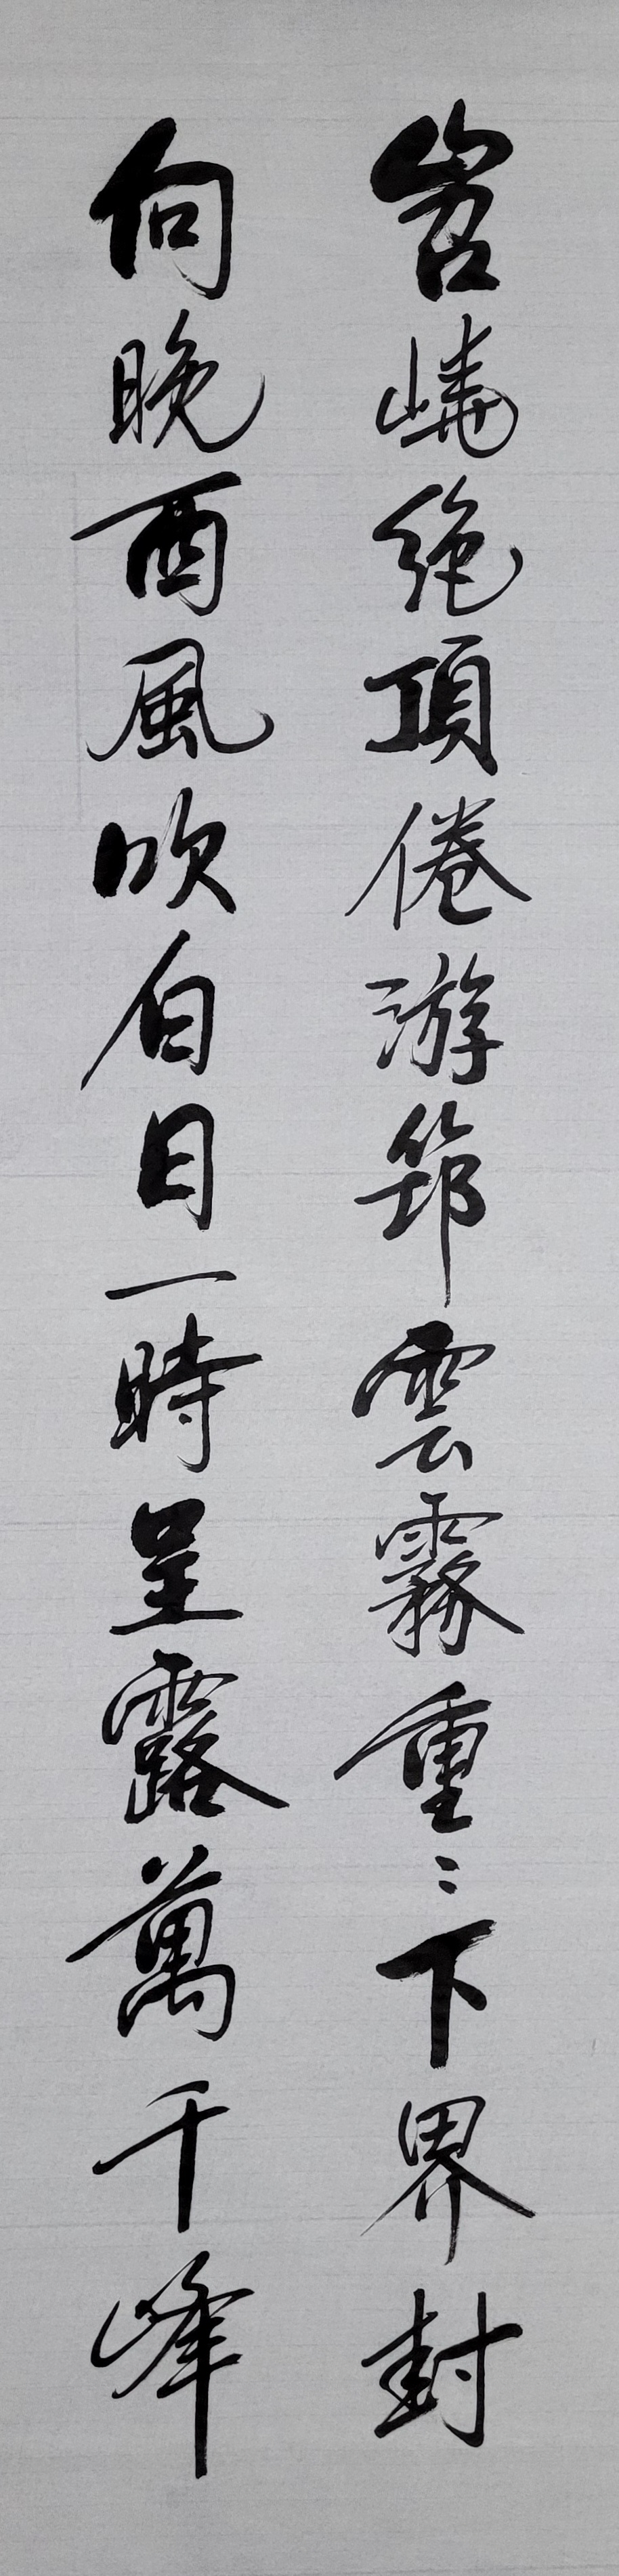 岧嶢絶頂倦游筇雲霧重〻下界封
向晚西風吹白日一時呈露萬千峰